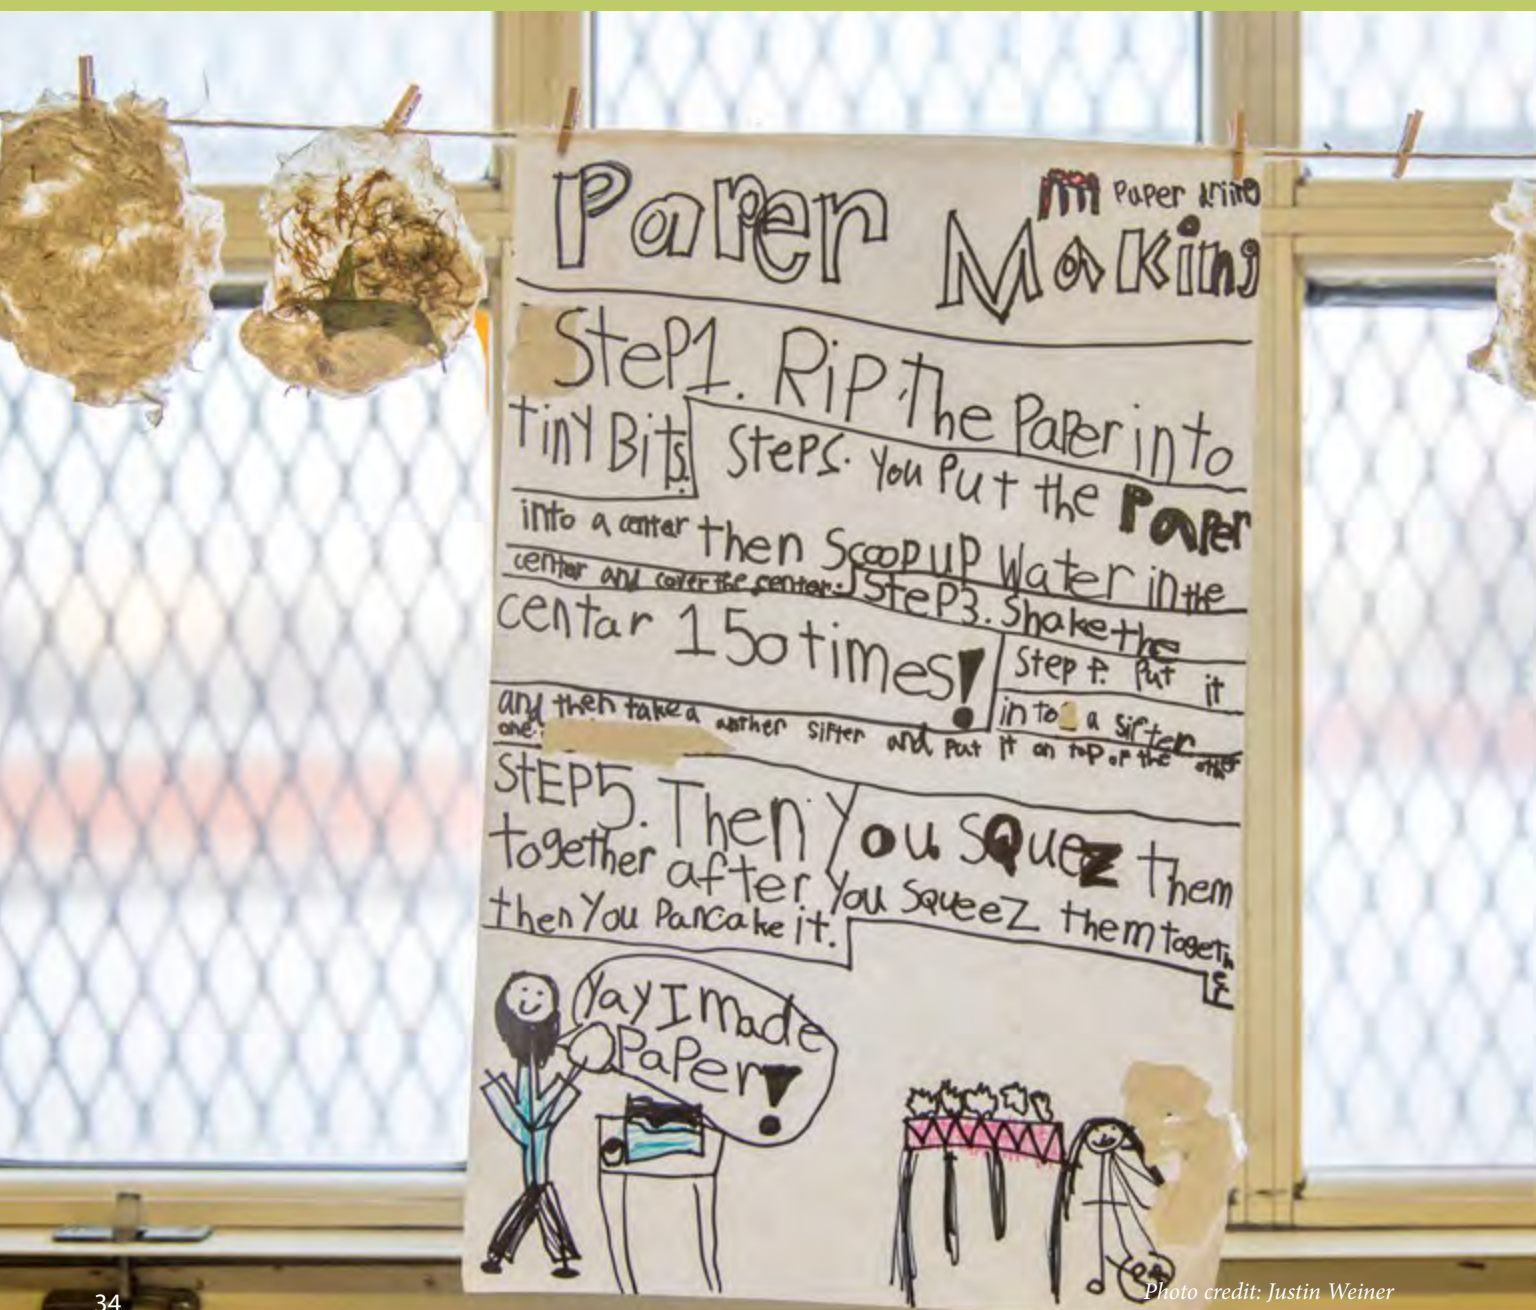 Paper
Paper
Making
Step1. Rip The Paper into
tiny Bits.
Steps. You Put the Paper
into a center then Scoop up Water in the
centar and cover the centar.
SteP3. Shake the
centar 150 times!
Step 4. Put it
into a sifter
and then take a anther sifter and Put it on top of the other
one.
StEP5. Then You SQuez them
together after You SqueeZ them together
then You Pancake it.
Yay I made
PaPer!
34
Photo credit: Justin Weiner